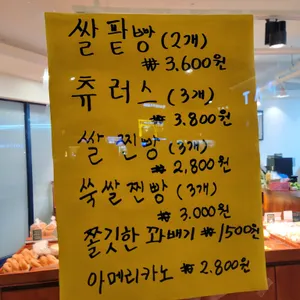 쌀팥빵 (2개)
₩ 3.600원
츄러스 (3개)
₩ 3.800원
쌀찐빵 (3개)
₩ 2,800원
쑥쌀찐빵 (3개)
₩ 3.000원
쫄깃한 꽈배기 ₩1500원
아메리카노 ₩2.800원